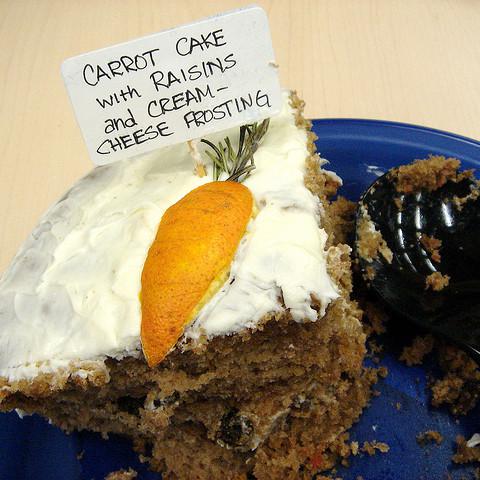 CARROT CAKE
with RAISINS
and CREAM-
CHEESE FROSTING